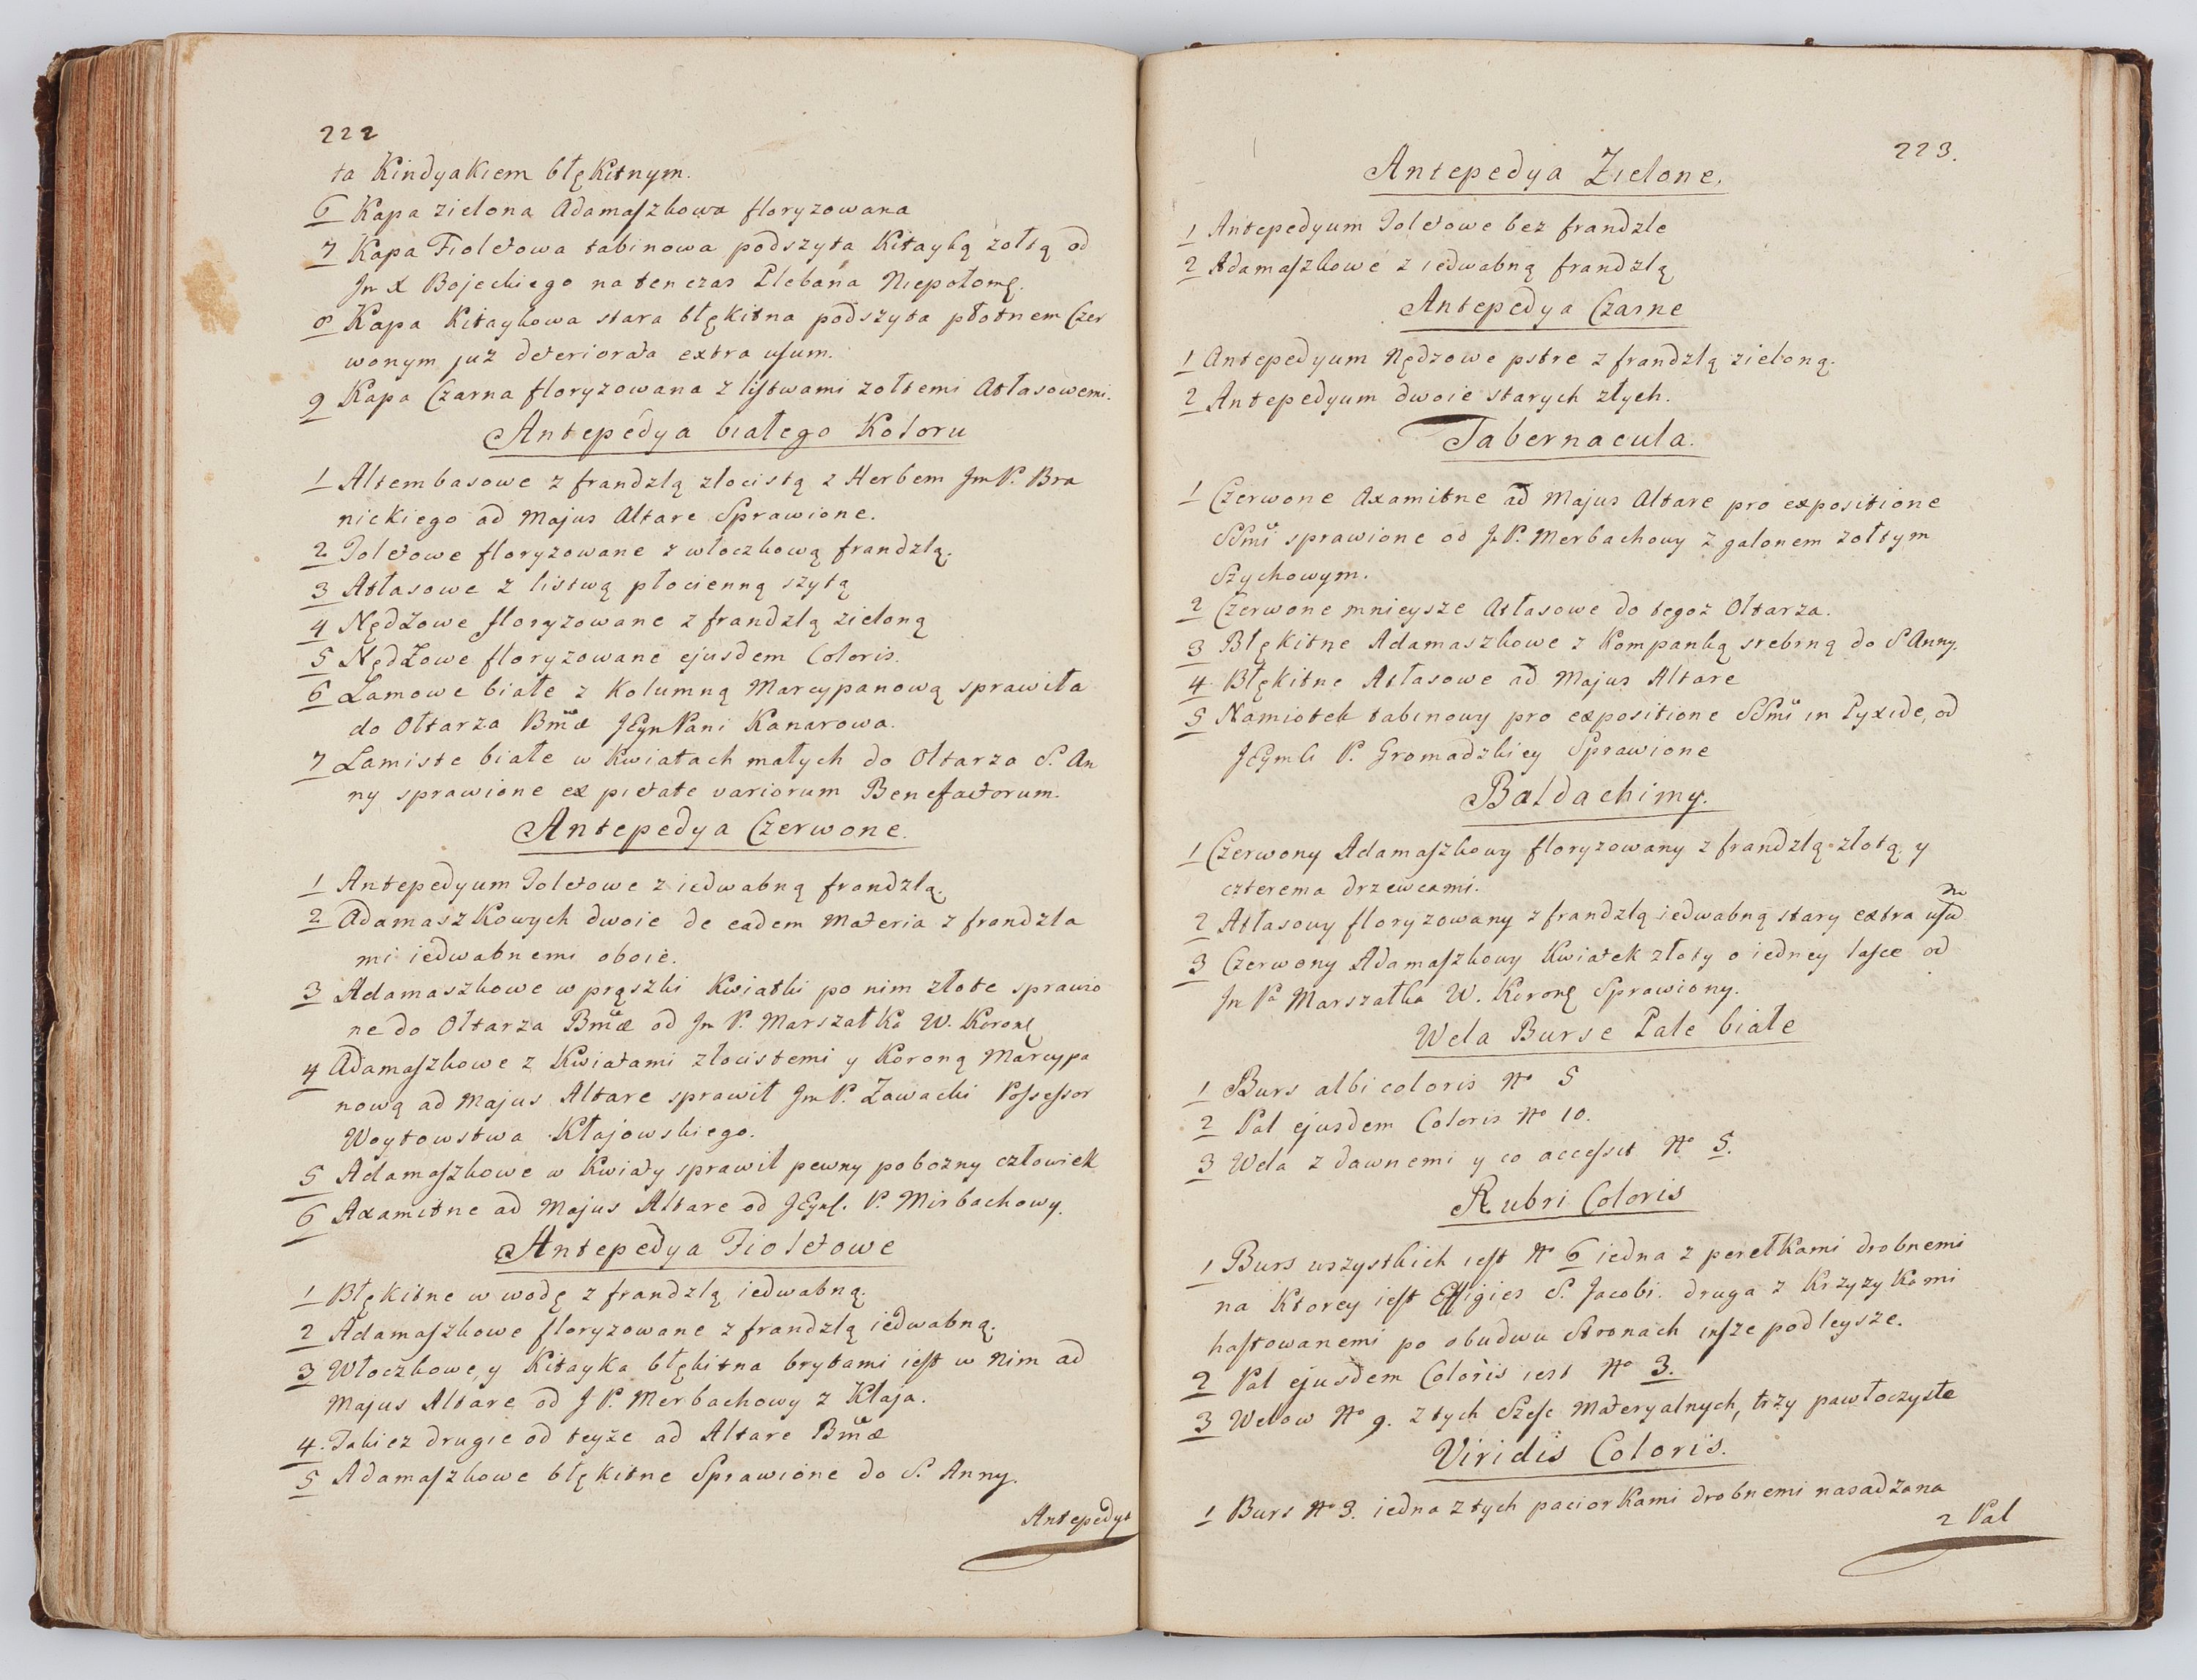 222
ta Kindyakiem błękitnym.
6 Kapa zielona Adamaszkowa floryzowana
7 Kapa Fioletowa tabinowa podszyta Kitayką zołtą od
Jm X Bojeckiego na ten czas Plebana Niepołomę.
8 Kapa Kitaykowa stara błękitna podszyta płotnem Czer
wonym juz deteriorata extra usum.
9 Kapa Czarna floryzowana z listwami zołtemi Atłasowemi.
Antepedya białego Koloru
1 Altembasowe z frandzlą złocistą z Herbem Jm P. Bra
nickiego ad Majus Altare Sprawione.
2 Toletowe floryzowane z włoczkową frandzlą.
3 Atłasowe z listwą płocienną szytą
4 Nędzowe floryzowane z frandzlą zieloną
5 Nędzowe floryzowane ejusdem Coloris.
6 Lamowe białe z Kolumną Marcypanową sprawiła
do Ołtarza Bmæ JEym Pani Kanarowa.
7 Lamiste białe w kwiatach małych do Ołtarza S. An
ny sprawione ex pietate variorum Benefactorum.
Antepedya Czerwone.
1 Antepedyum Toletowe z iedwabną frandzlą.
2 Adamaszkowych dwoie de eadem Materia z frandzla
mi iedwabnemi oboie.
3 Adamaszkowe w prązki Kwiatki po nim złote sprawio
ne do Ołtarza Bmæ od Jm P. Marszałka W. Koronę
4 Adamaszkowe z Kwiatami złocistemi y Koroną Marcypa
nową ad Majus Altare sprawił Jm P. Zawacki Possessor
Woytowstwa Kłajowskiego.
5 Adamaszkowe w Kwiaty sprawił pewny pobozny człowiek
6 Axamitne ad Majus Altare od JEym. P. Mirbachowy.
Antepedya Fioletowe
1 Błękitne w wodę z frandzlą iedwabną.
2 Adamaszkowe floryzowane z frandzlą iedwabną.
3 Włoczkowe, y Kitayka błękitna brytami iest w nim ad
Majus Altare od J P. Merbachowy z Kłaja.
4. Takiez drugie od teyze ad Altare Bmæ
5 Adamaszkowe błękitne Sprawione do S. Anny.
Antepedya
223.
Antepedya Zielone.
1 Antepedyum Toletowe bez frandzle
2 Adamaszkowe z iedwabną frandzlą
Antepedya Czarne
1 Antepedyum Nędzowe pstre z frandzlą zieloną.
2 Antepedyum dwoie starych złych.
Tabernacula.
1 Czerwone Axamitne ad Majus Altare pro expositione
SSmi sprawione od J P. Merbachowy z galonem zołtym
Szychowym.
2 Czerwone mnieysze Atłasowe do tegoz Ołtarza.
3 Błękitne Adamaszkowe z Kompanką srebrną do S Anny.
4. Błękitne Atłasowe ad Majus Altare
5 Namiotek tabinowy pro expositione SSmi in Pyxide, od
JEymci P. Gromadzkiey Sprawione
Baldachimy.
1 Czerwony Adamaszkowy floryzowany z frandzlą złotą y
czterema drzewcami.
2 Atłasowy floryzowany z frandzlą iedwabną stary extra usum
3 Czerwony Adamaszkowy Kwiatek złoty o iedney lasce od
Jm Pa Marszałka W. Koronę Sprawiony.
Wela Burse Pale białe
1 Burs albi coloris No 5
2 Pal ejusdem Coloris No 10.
3 Wela z dawnemi y co accessit No 5.
Rubri Coloris
1 Burs wszystkich iest No 6 iedna z perełkami drobnemi
na Ktorey iest Effigies S. Jacobi. druga z Krzyzykami
haftowanemi po obudwu Stronach insze podleysze.
2 Pal ejusdem Coloris iest No 3.
3 Welow No 9. z tych Szesc Materyalnych, trzy pawłoczyste
Viridis Coloris.
1 Burs No 3. iedna z tych paciorkami drobnemi nasadzona
2 Pal